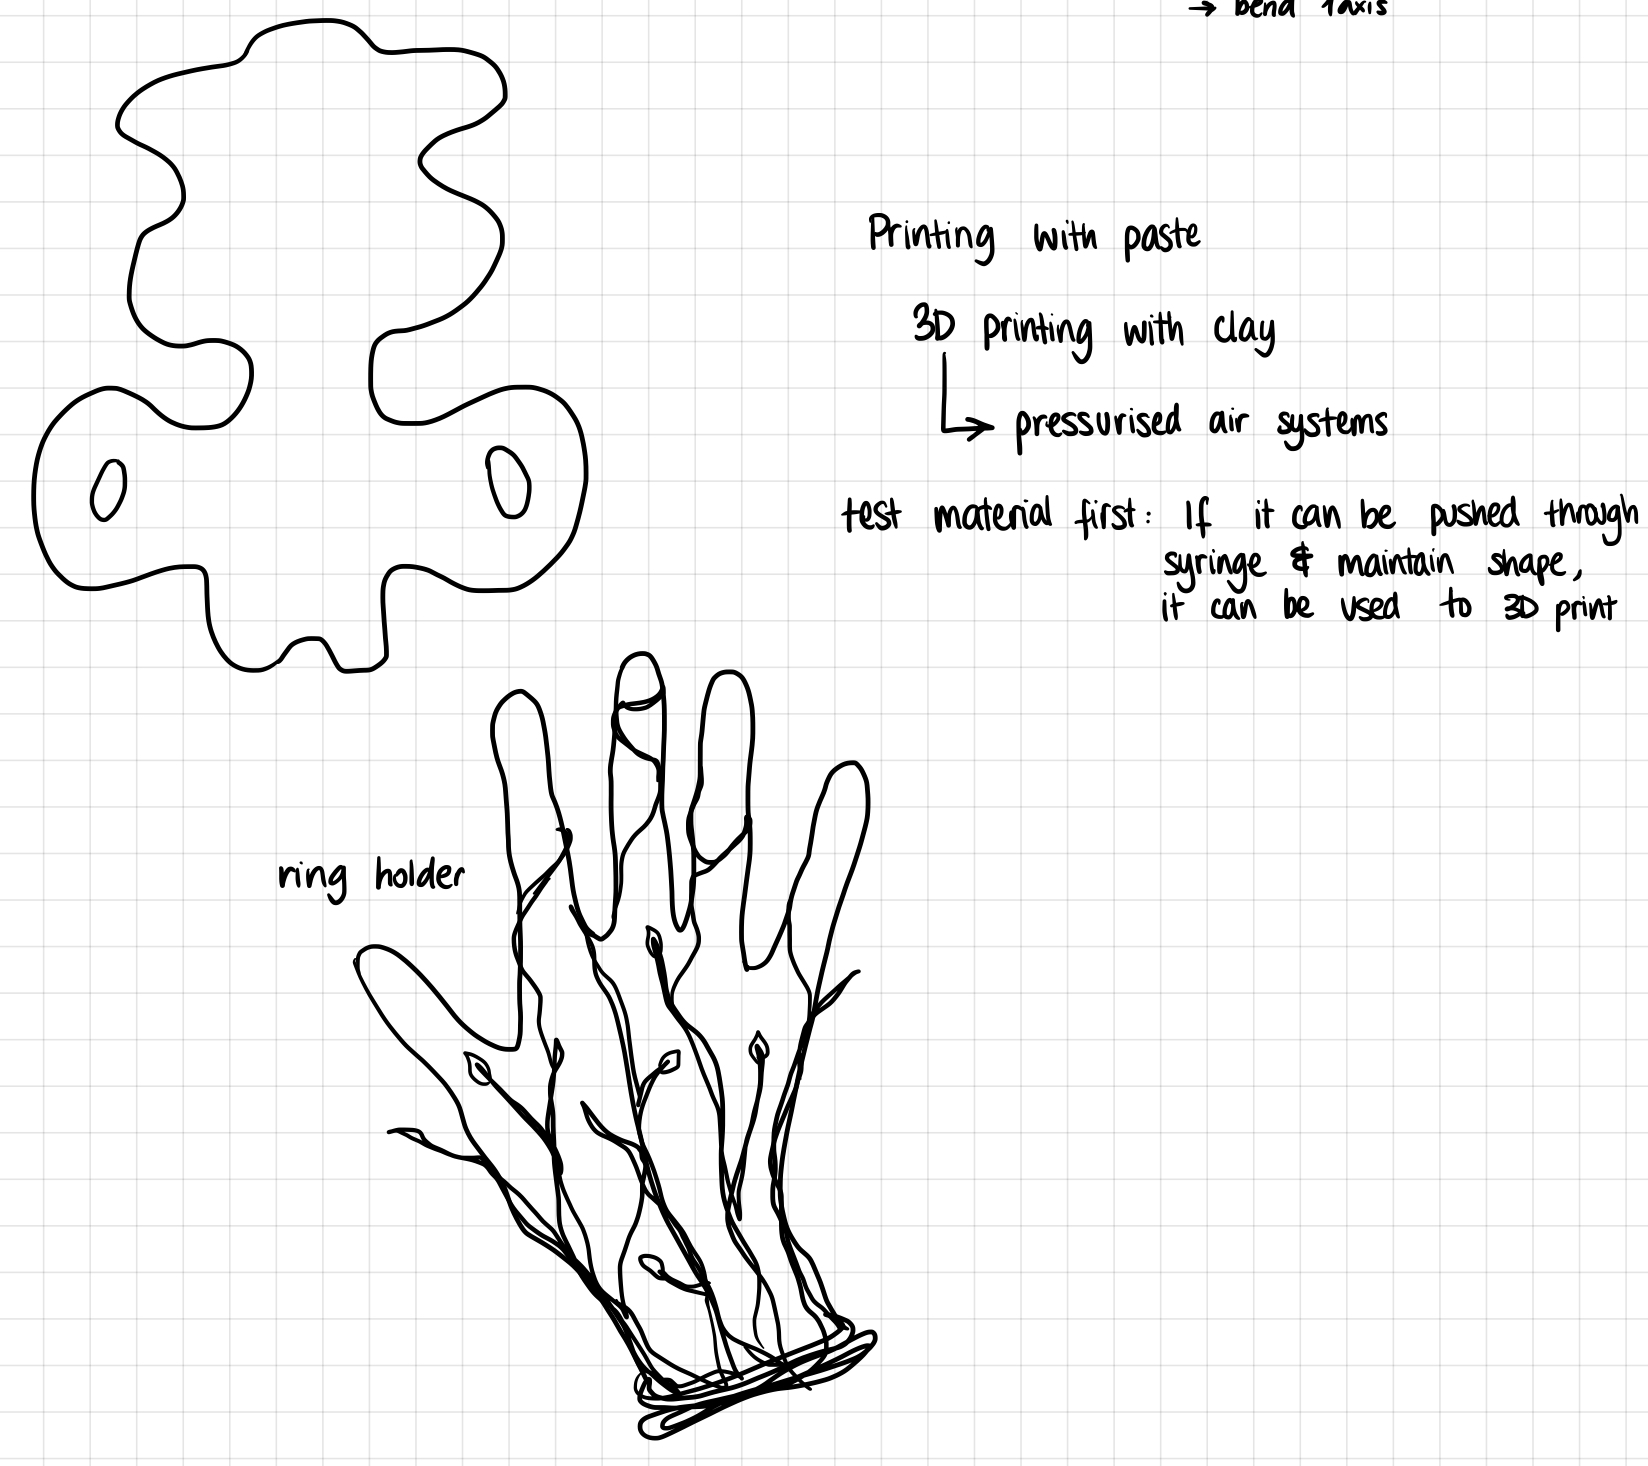 → bend 1axis
Printing with paste
3D printing with clay
→ pressurised air systems
test material first: If it can be pushed through
syringe & maintain shape,
it can be used to 3D print
ring holder